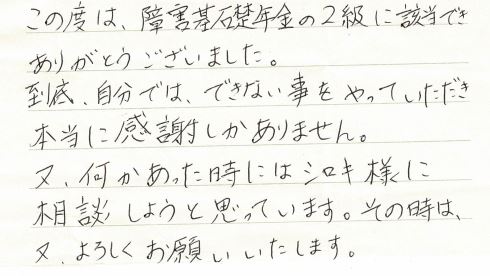 この度は、障害基礎年金の2級に該当でき
ありがとうございました。
到底、自分では、できない事をやっていただき
本当に感謝しかありません。
又、何かあった時にはシロキ様に
相談しようと思っています。その時は、
又、よろしくお願いいたします。